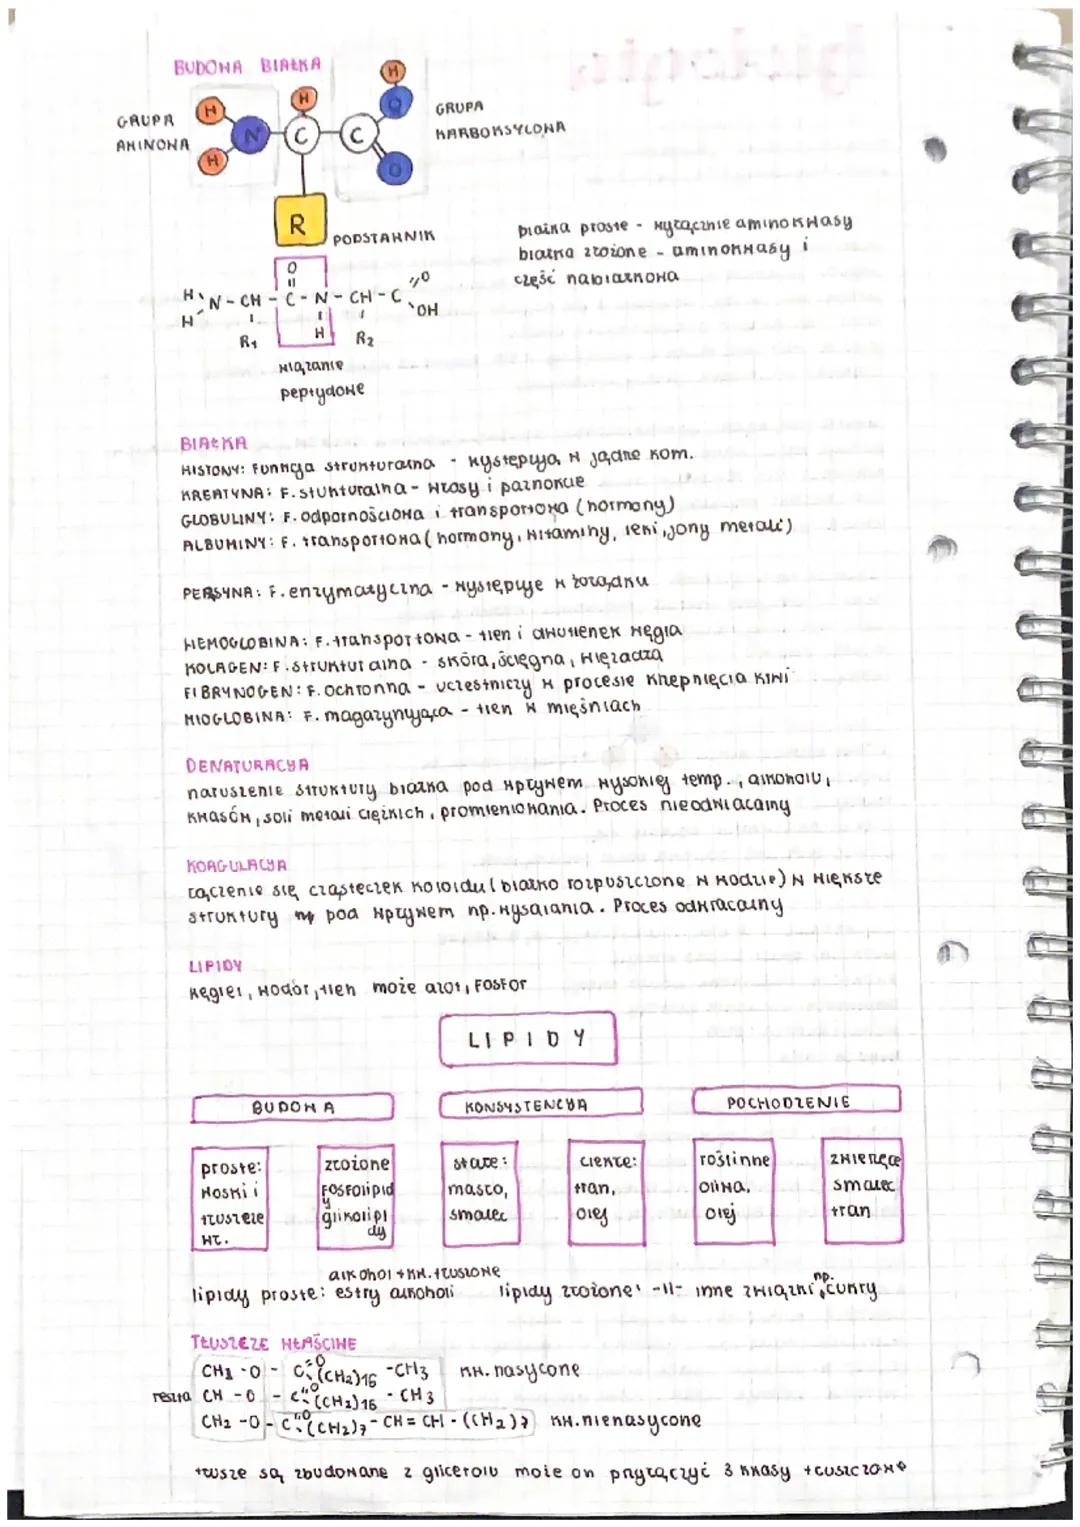 BUDOWA BIAŁKA
GRUPA AMINOWA
H
H
N
H
C
C
H
O
O
R
GRUPA KARBOKSYLOWA
PODSTAWNIK
białka proste - wyłącznie aminokwasy
białka złożone - aminokwasy i
część niebiałkowa
O
H N - CH - C - N - CH - C O
H R1 H R2 OH
wiązanie
peptydowe
BIAŁKA
HISTONY: Funkcja strukturalna - występują w jądrze kom.
KREATYNA: F. stukturalna - włosy i paznokcie
GLOBULINY: F. odpornościowa i transportowa (hormony)
ALBUMINY: F. transportowa (hormony, witaminy, leki, jony metali)
PEPSYNA: F. enzymatyczna - występuje w żołądku
HEMOGLOBINA: F. transportowa - tlen i dwutlenek węgla
KOLAGEN: F. strukturalna - skóra, ścięgna, więzadła
FIBRYNOGEN: F. ochronna - uczestniczy w procesie krzepnięcia krwi
MIOGLOBINA: F. magazynująca - tlen w mięśniach
DENATURACJA
naruszenie struktury białka pod wpływem wysokiej temp., alkoholu,
kwasów, soli metali ciężkich, promieniowania. Proces nieodwracalny
KOAGULACJA
łączenie się cząsteczek koloidu (białko rozpuszczone w wodzie) w większe
struktury pod wpływem np. wysalania. Proces odwracalny
LIPIDY
węgiel, wodór, tlen może azot, FOSFOR
LIPIDY
BUDOWA
KONSYSTENCJA
POCHODZENIE
proste: woski i tłuszcze wł.
złożone fosfolipidy glikolipidy
stałe: masło, smalec
ciekłe: tran, olej
roślinne oliwa, olej
zwierzęce smalec tran
alkohol + kw. tłuszowe
lipidy proste: estry alkoholi
lipidy złożone: -II- inne związki np. cukry
TŁUSZCZE WŁAŚCIWE
CH2 - O - C=O (CH2)16 - CH3 kw. nasycone
reszta CH - O - C=O (CH2)16 - CH3
CH2 - O - C=O (CH2)7 - CH = CH - ((CH2)7 kw. nienasycone
tłusze są zbudowane z glicerolu może on przyłączyć 3 kwasy tłuszczowe